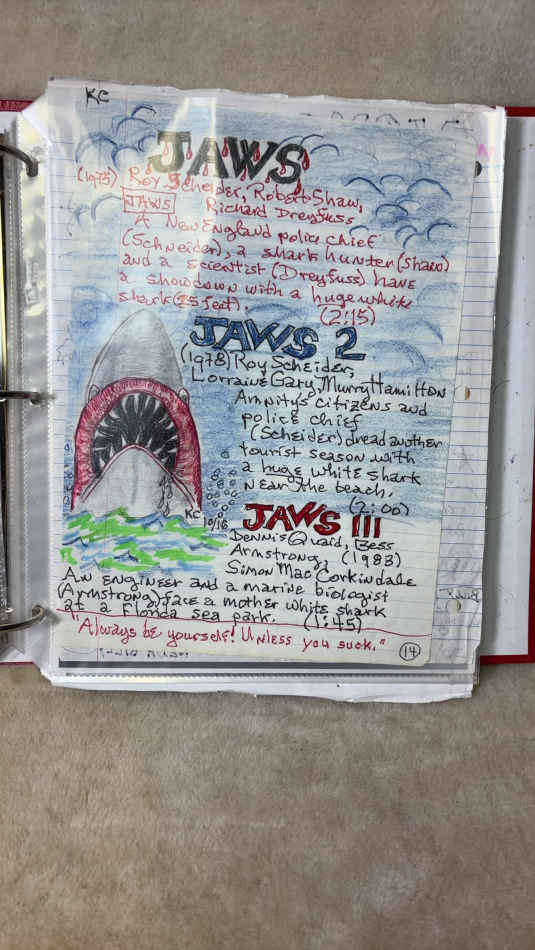 KC
JAWS
(1975) Roy Scheider, Robert Shaw,
JAWS Richard Dreyfuss
A New England police chief
(Schneider), a shark hunter (Shaw)
and a scientist (Dreyfuss) have
a showdown with a huge white
shark (25 feet). (2:15)
JAWS 2
(1978) Roy Scheider,
Lorraine Gary, Murry Hamilton
Amnity's citizens and
police chief
(Scheider) dread another
tourist season with
a huge white shark
near the beach.
(2:00)
KC
10/16
JAWS III
Dennis Quaid, Bess
Armstrong, (1983)
Simon MacCorkindale
An engineer and a marine biologist
(Armstrong) face a mother white shark
at a Florida sea park. (1:45)
"Always be yourself! Unless you suck."
14